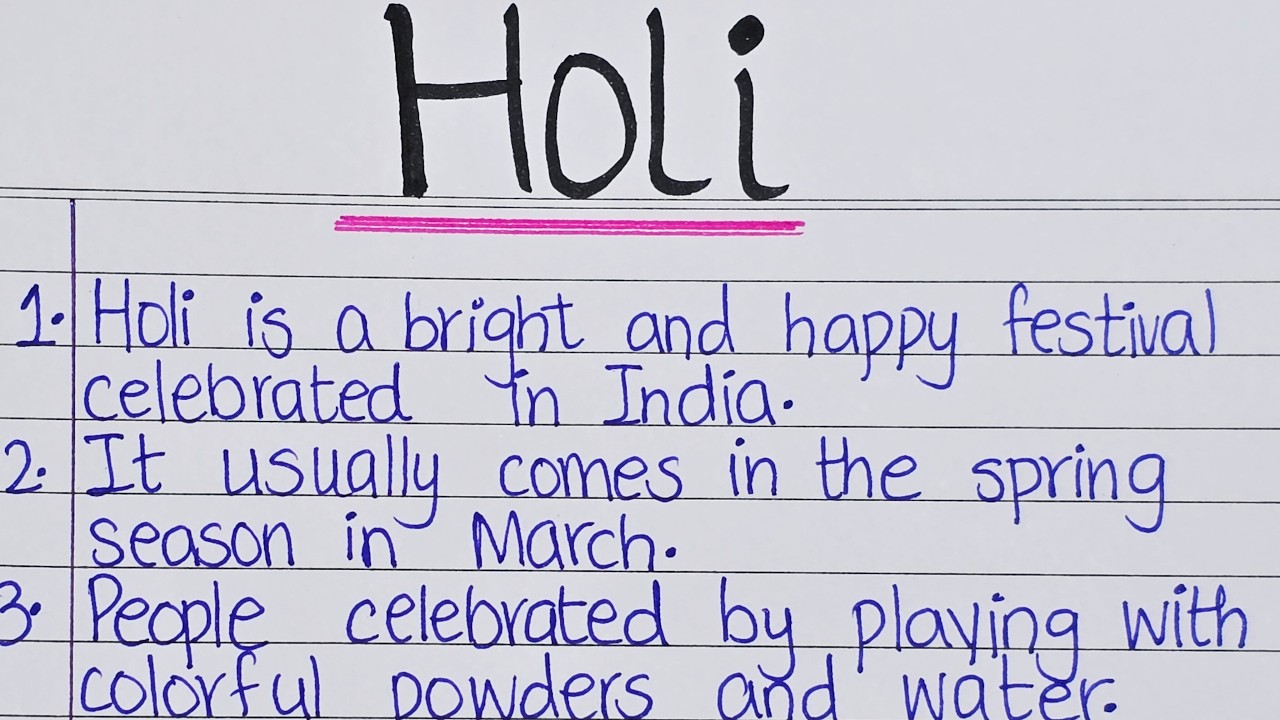 Holi
1. Holi is a bright and happy festival
celebrated in India.
2. It usually comes in the spring
season in March.
3. People celebrated by playing with
colorful powders and water.